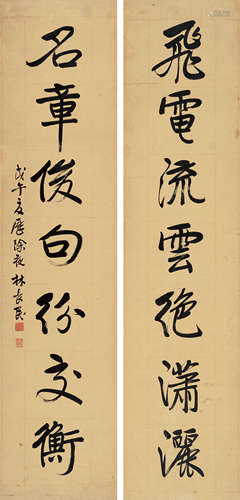 飛電流雲絶瀟灑
名章俊句紛交衡
戊午夏曆除夜 林長民